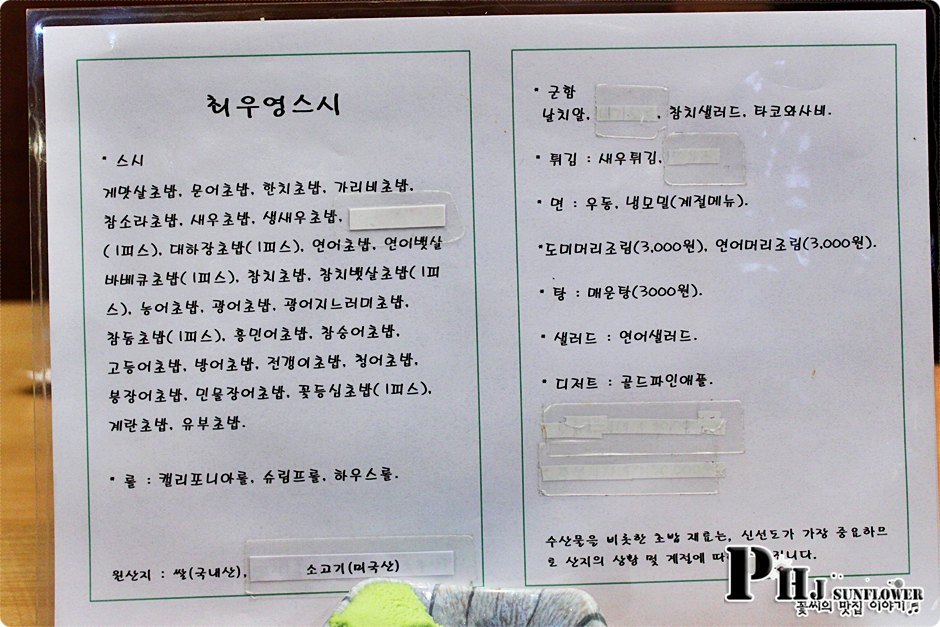 최우영스시
* 스시
게맛살초밥, 문어초밥, 한치초밥, 가리비초밥,
참소라초밥, 새우초밥, 생새우초밥,
(1피스), 대하장초밥(1피스), 연어초밥, 연어뱃살
바베큐초밥(1피스), 참치초밥, 참치뱃살초밥(1피
스), 농어초밥, 광어초밥, 광어지느러미초밥,
참돔초밥(1피스), 홍민어초밥, 참숭어초밥,
고등어초밥, 방어초밥, 전갱이초밥, 청어초밥,
붕장어초밥, 민물장어초밥, 꽃등심초밥(1피스),
계란초밥, 유부초밥.
* 롤 : 캘리포니아롤, 슈림프롤, 하우스롤.
원산지 : 쌀(국내산), 소고기(미국산)
* 군함
날치알, , 참치샐러드, 타코와사비.
* 튀김 : 새우튀김,
* 면 : 우동, 냉모밀(계절메뉴).
*도미머리조림(3,000원), 연어머리조림(3,000원).
* 탕 : 매운탕(3000원).
* 샐러드 : 연어샐러드.
* 디저트 : 골드파인애플.
수산물을 비롯한 초밥 재료는, 신선도가 가장 중요하므
로 산지의 상황 및 계절에 따 립니다.
PHJ SUNFLOWER
꽃씨의 맛집 이야기♬